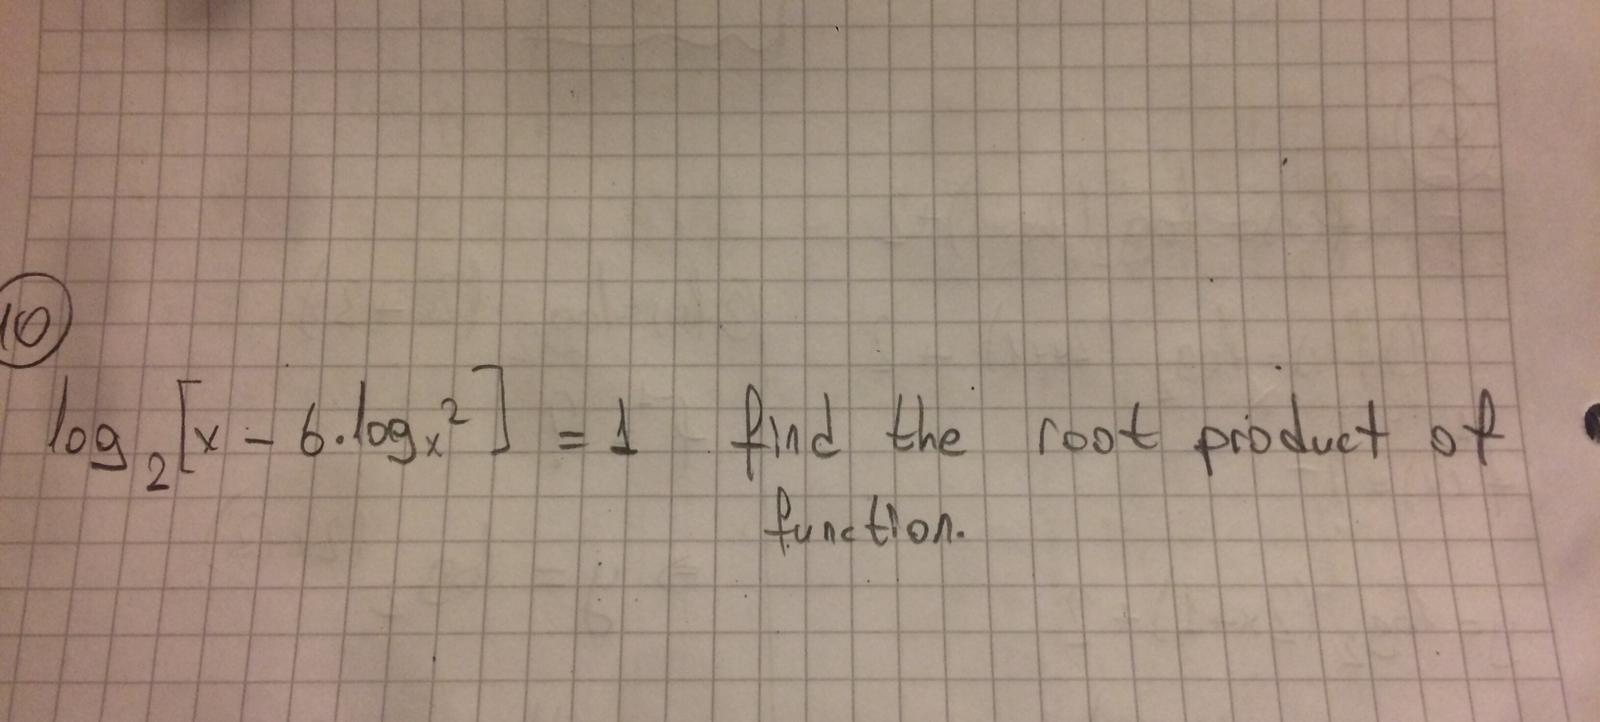 10
log₂[x - 6.logₓ²] = 1 find the root product of
function.